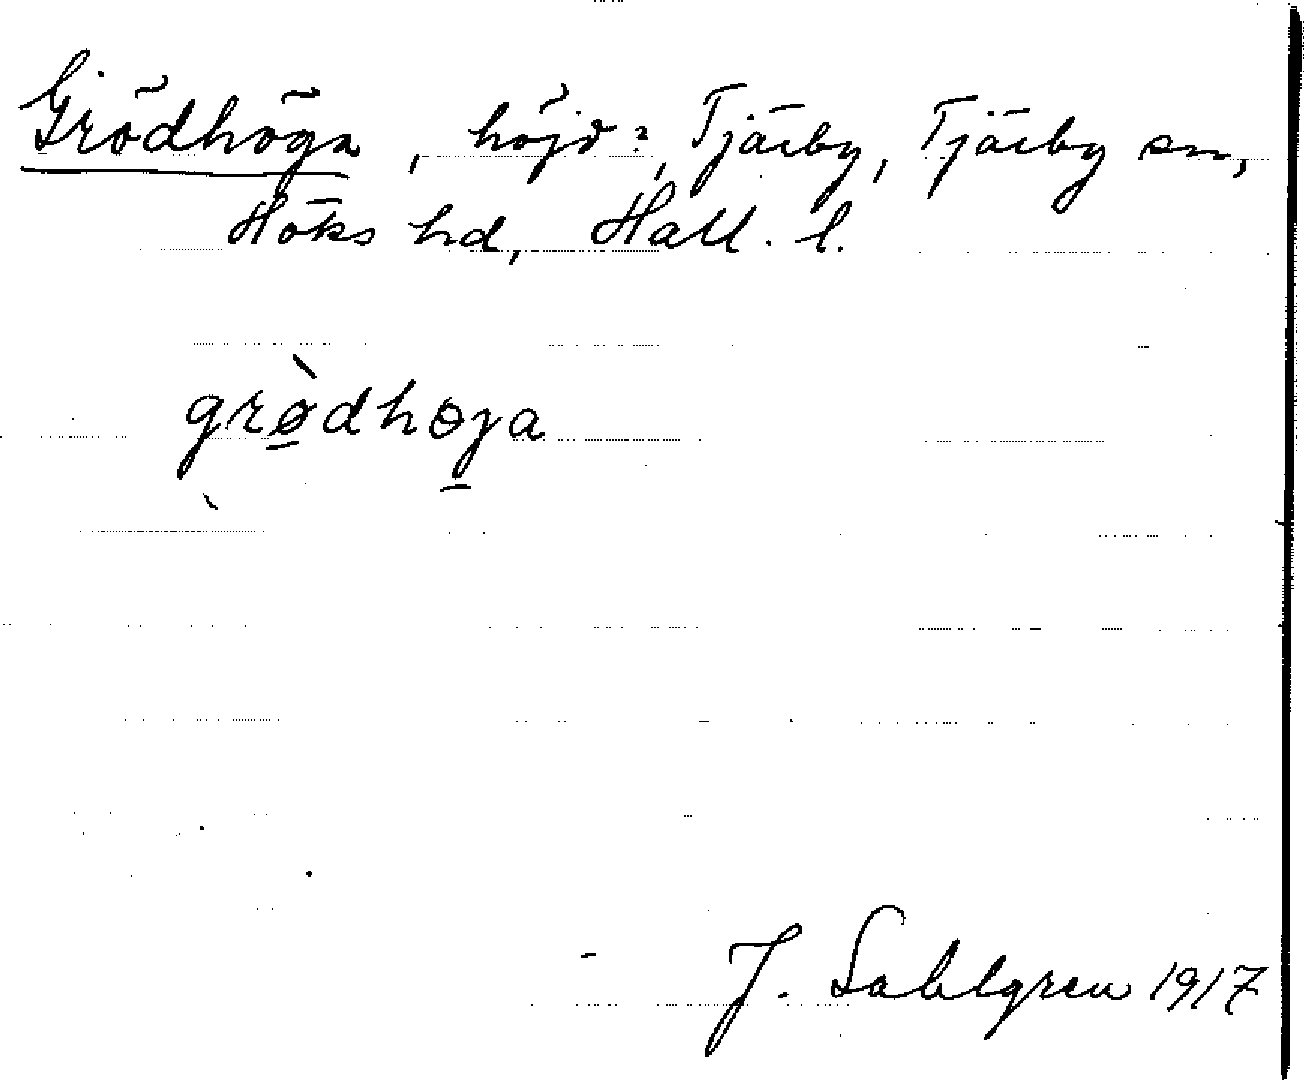 Grödhöga, höjd?, Tjärby, Tjärby sn,
Höks hd, Hall. l.
grø̀dhøja
J. Sahlgren 1917